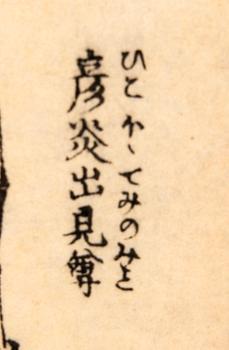 ひこ ほゝでみのみこと
彦炎出見尊